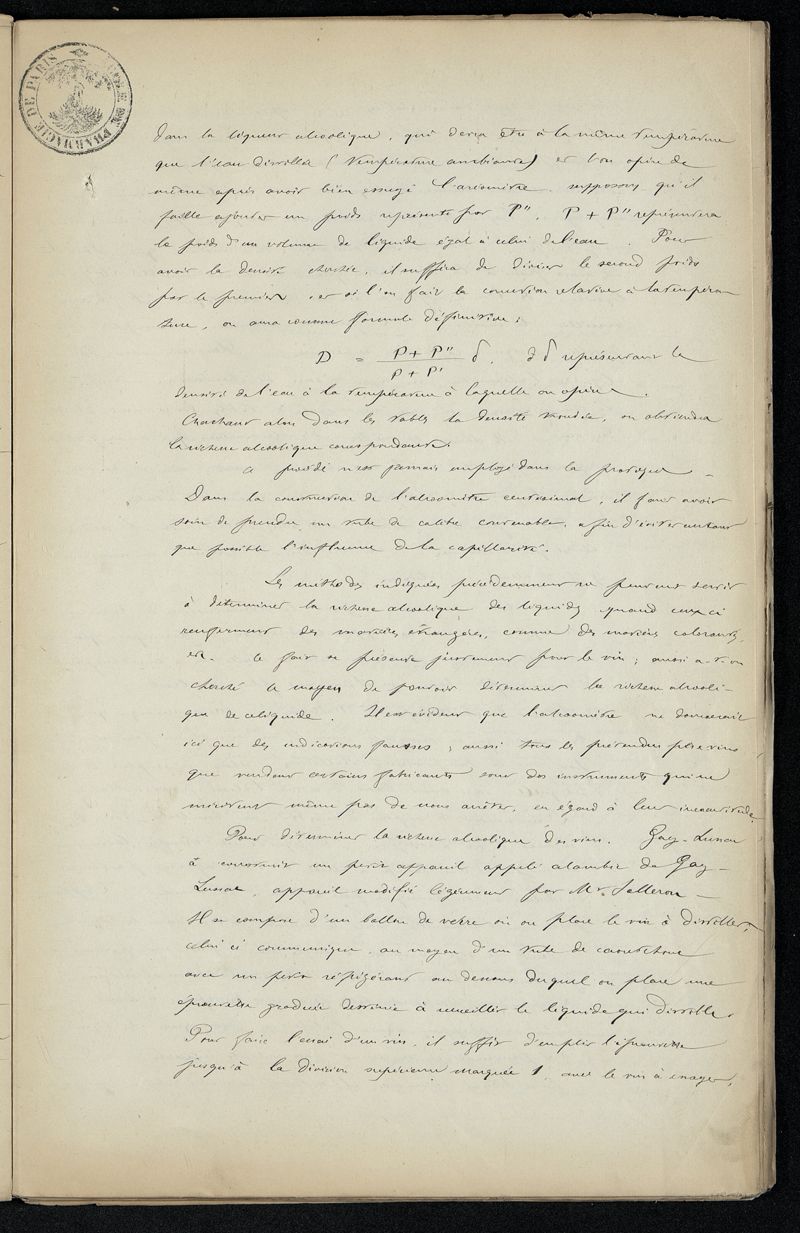 ÉCOLE DE PHARMACIE DE PARIS
dans la liqueur alcoolique, qui devra être à la même température
que l'eau distillée (température ambiante) et l'on opère de
même après avoir bien essuyé l'aréomètre. supposons qu'il
faille ajouter un poids représenté par P". P + P" représentera
le poids d'un volume de liquide égal à celui de l'eau. Pour
avoir la densité cherchée, il suffira de diviser le second poids
par le premier, et si l'on fait la correction relative à la tempéra-
ture, on aura comme formule définitive :
D = P + P" / P + P' δ. δ représentant la
densité de l'eau à la température à laquelle on opère.
Cherchant alors dans les tables la densité trouvée, on obtiendra
la richesse alcoolique correspondante.
Ce procédé n'est jamais employé dans la pratique –
Dans la construction de l'alcoomètre centésimal, il faut avoir
soin de prendre un tube de calibre convenable, afin d'éviter autant
que possible l'influence de la capillarité.
Les méthodes indiquées précédemment ne peuvent servir
à déterminer la richesse alcoolique des liquides quand ceux ci
renferment des matières étrangères, comme des matières colorantes,
etc. Ce fait se présente justement pour le vin ; aussi a-t-on
cherché le moyen de pouvoir déterminer la richesse alcooli-
que de ce liquide. Il est évident que l'alcoomètre ne donnerait
ici que des indications fausses ; aussi tous les prétendus pèse vins
que vendent certains fabricants sont des instruments qui ne
méritent même pas de nous arrêter, eu égard à leur inexactitude.
Pour déterminer la richesse alcoolique des vins. Gay-Lussac
a construit un petit appareil appelé alambic de Gay-
Lussac, appareil modifié légèrement par Mr. Salleron –
Il se compose d'un ballon de verre où on place le vin à distiller,
celui ci communique, au moyen d'un tube de caoutchouc
avec un petit réfrigérant au dessous duquel on place une
éprouvette graduée destinée à recueillir le liquide qui distille.
Pour faire l'essai d'un vin, il suffit d'emplir l'éprouvette
jusqu'à la division supérieure marquée 1 avec le vin à essayer,